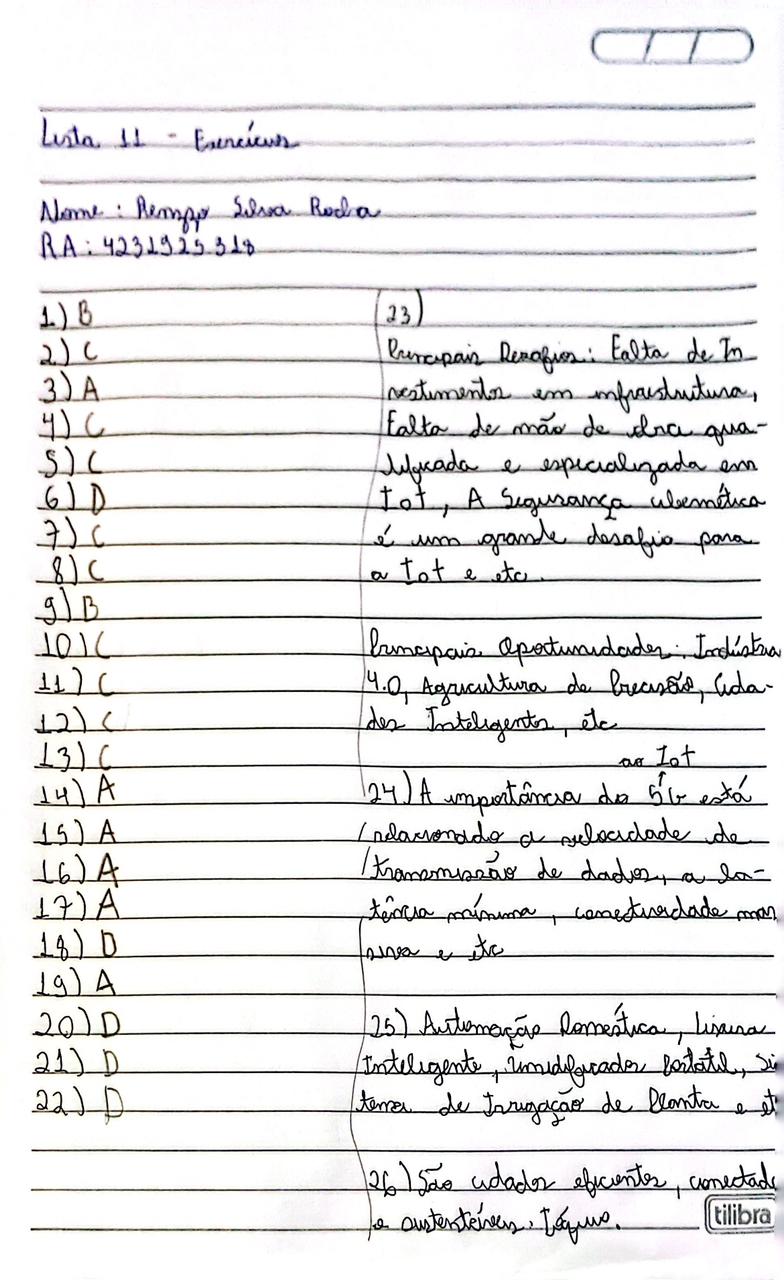 Lista 11 - Exercícios
Nome: Silva Rocha
RA: 4231925318
1) B
2) C
3) A
4) C
5) C
6) D
7) C
8) C
9) B
10) C
11) C
12) C
13) C
14) A
15) A
16) A
17) A
18) D
19) A
20) D
21) D
22) D
23)
Principais Desafios: Falta de In
vestimentos em infraestrutura,
Falta de mão de obra qua-
lificada e especializada em
Iot, A Segurança cibernética
é um grande desafio para
a Iot e etc.
Principais Oportunidades: Indústria
4.0, Agricultura de Precisão, Cida-
des Inteligentes, etc
ao Iot
24) A importância do 5G está
relacionado a velocidade de
transmissão de dados, a la-
tência mínima, conectividade mas
siva e etc
25) Automação Doméstica, Lixeira
Inteligente, Umidificador Portátil, Sis
tema de Irrigação de Planta e et
26) São cidades eficientes, conectad
e sustentáveis. Tóquio.
tilibra